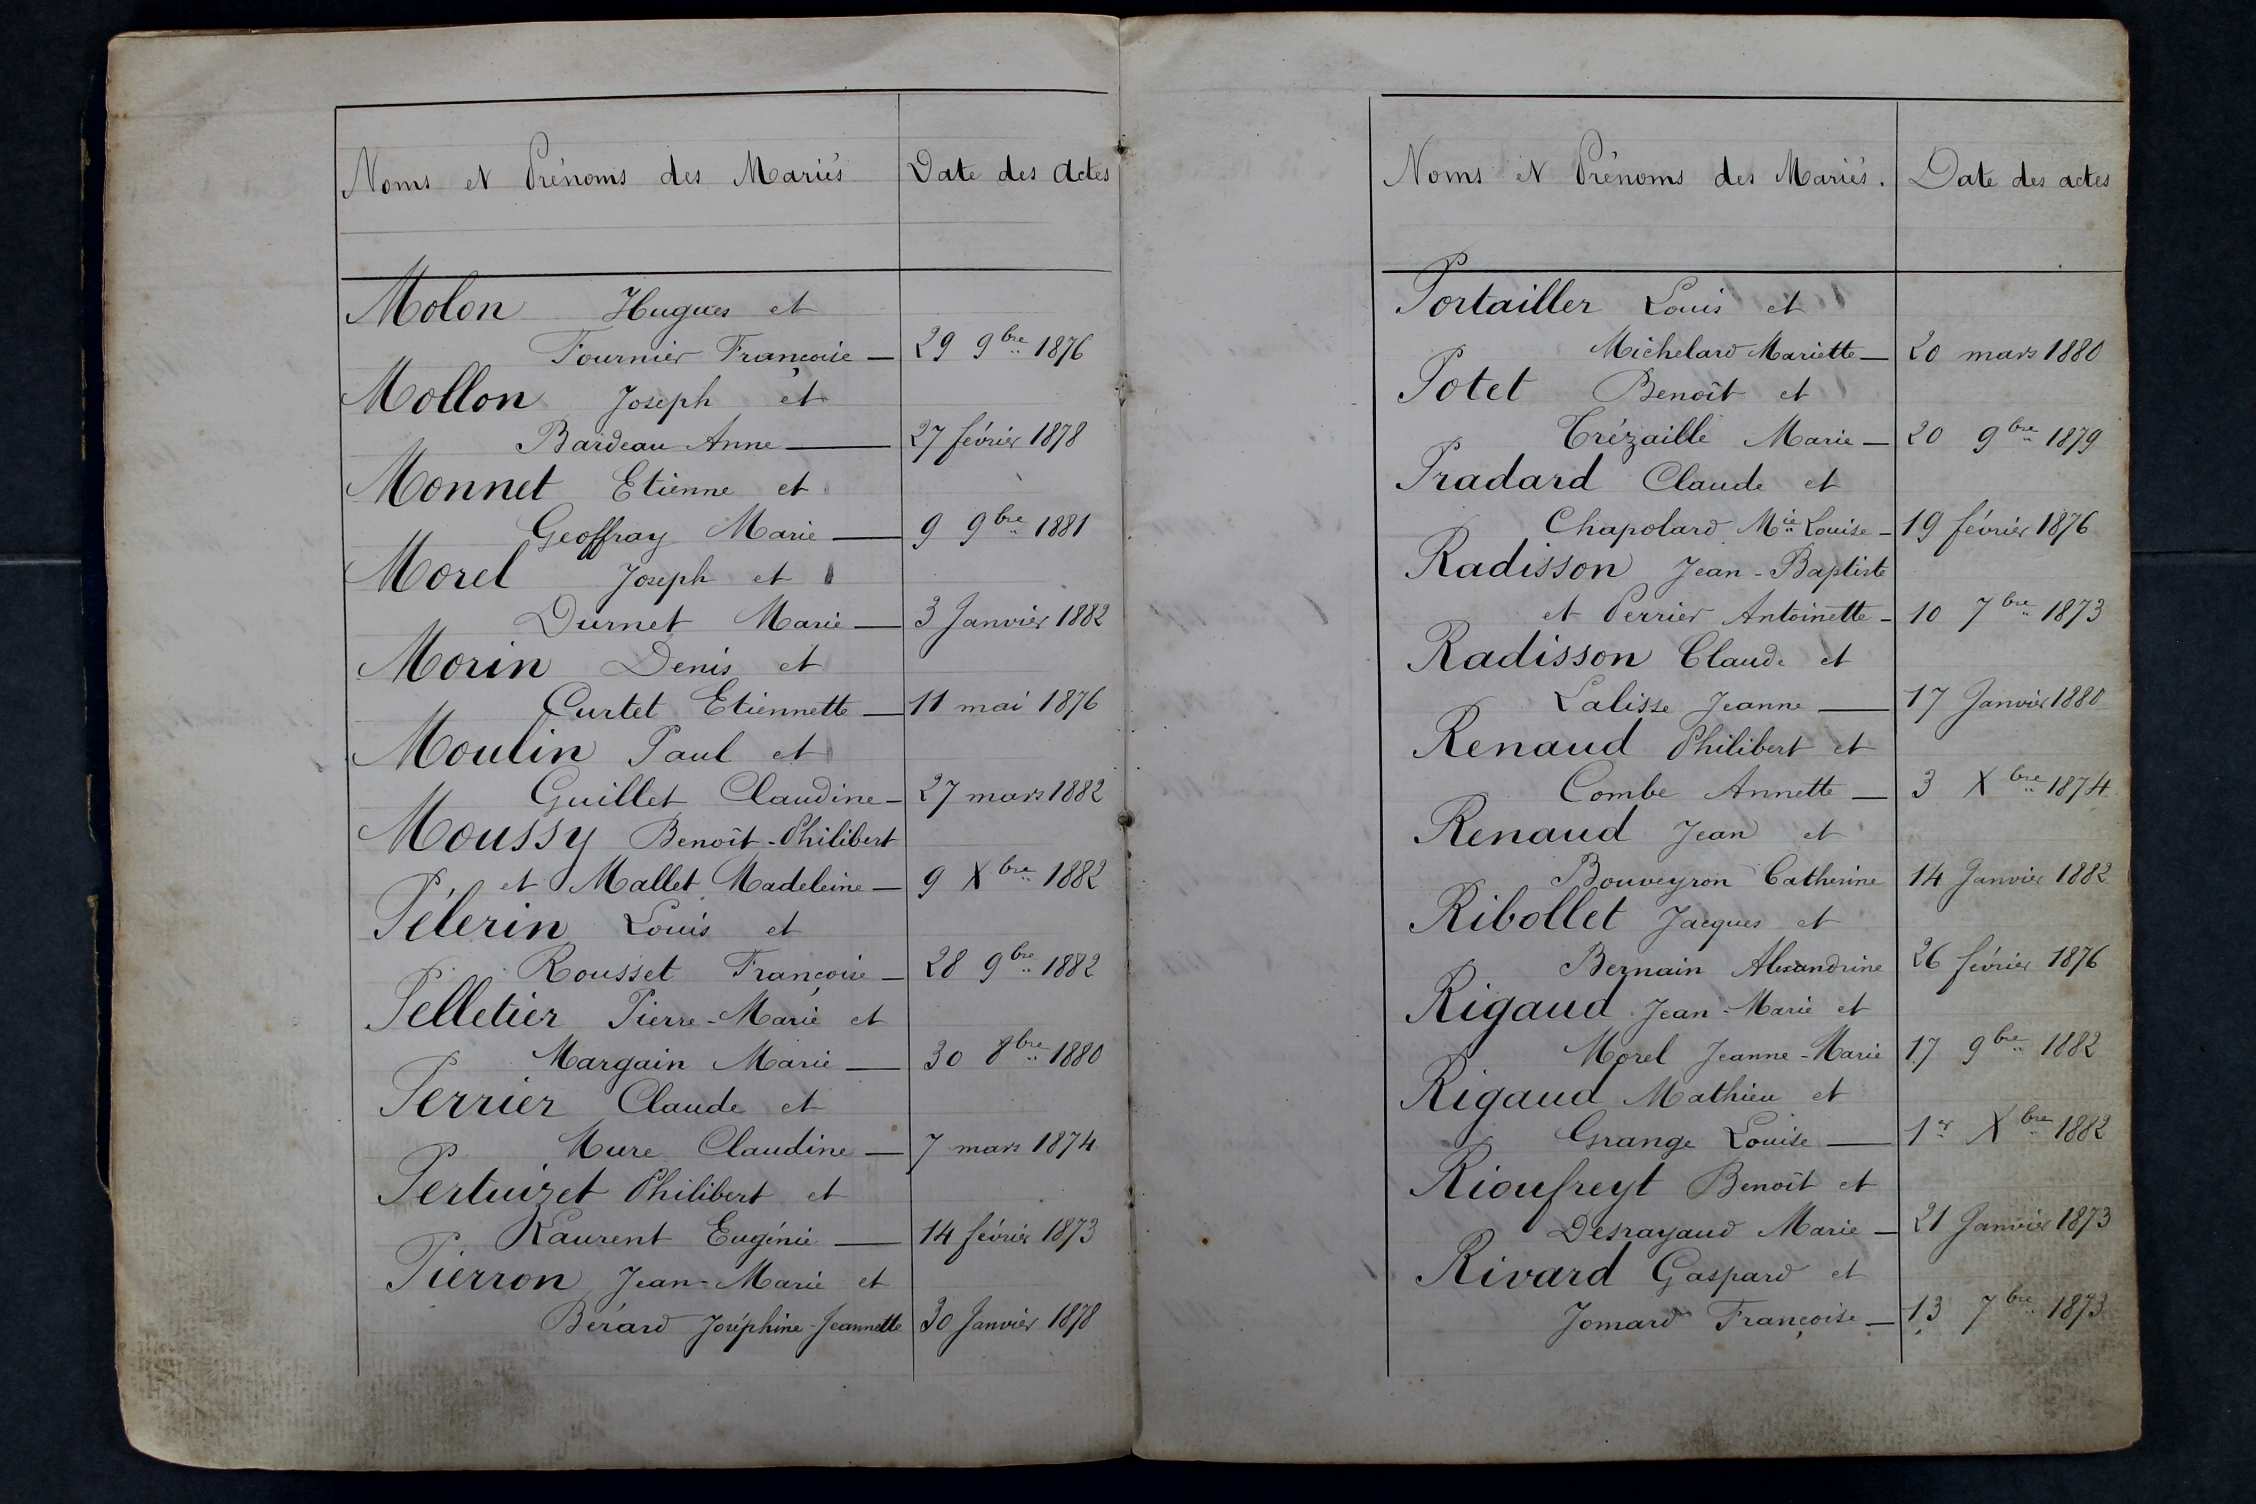 Noms et Prénoms des Mariés Date des actes
Molon Hugues et
Fournier Françoise — 29 9bre 1876
Mollon Joseph et
Bardeau Anne — 27 février 1878
Monnet Etienne et
Geoffray Marie — 9 9bre 1881
Morel Joseph et
Durnet Marie — 3 Janvier 1882
Morin Denis et
Curtet Etiennette — 11 mai 1876
Moulin Paul et
Guillet Claudine — 27 mars 1882
Moussy Benoît-Philibert
et Mallet Madeleine — 9 Xbre 1882
Pélerin Louis et
Rousset Françoise — 28 9bre 1882
Pelletier Pierre-Marie et
Margain Marie — 30 8bre 1880
Perrier Claude et
Mure Claudine — 7 mars 1874
Pertuizet Philibert et
Laurent Eugénie — 14 février 1873
Pierron Jean-Marie et
Bérard Joséphine-Jeannette 30 Janvier 1878
Noms et Prénoms des Mariés. Date des actes
Portailler Louis et
Michelard Mariette — 20 mars 1880
Potet Benoît et
Trézaille Marie — 20 9bre 1879
Pradard Claude et
Chapolard Mie Louise — 19 février 1876
Radisson Jean-Baptiste
et Perrier Antoinette — 10 7bre 1873
Radisson Claude et
Lalisse Jeanne — 17 Janvier 1880
Renaud Philibert et
Combe Annette — 3 Xbre 1874
Renaud Jean et
Bouveyron Catherine 14 Janvier 1882
Ribollet Jacques et
Bernain Alexandrine 26 février 1876
Rigaud Jean-Marie et
Morel Jeanne-Marie 17 9bre 1882
Rigaud Mathieu et
Grange Louise — 1er Xbre 1882
Rioufreyt Benoît et
Desrayaud Marie — 21 Janvier 1873
Rivard Gaspard et
Jomard Françoise — 13 7bre 1873